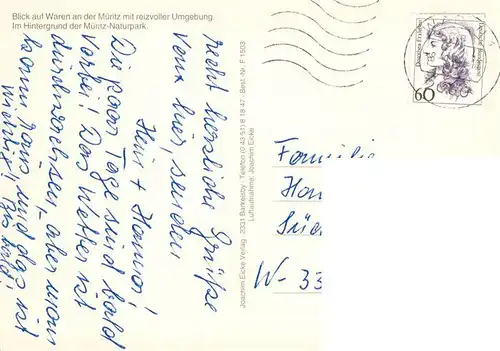 Blick auf Waren an der Müritz mit reizvoller Umgebung.
Im Hintergrund der Müritz-Naturpark.
recht herzliche Grüße
von hier, senden
Hein + Hannni!
Die paar Tage sind bald
vorbei! Das Wetter ist
durchwachsen, aber man
kann raus und das ist
wichtig! Bis bald!
Joachim Eicke Verlag · 2331 Barkelsby · Telefon (0 43 51) 8 18 47 · Best.-Nr. F 1503
Luftaufnahme: Joachim Eicke
Deutsche Bundespost
60
Familie
Han
Süd
W-33